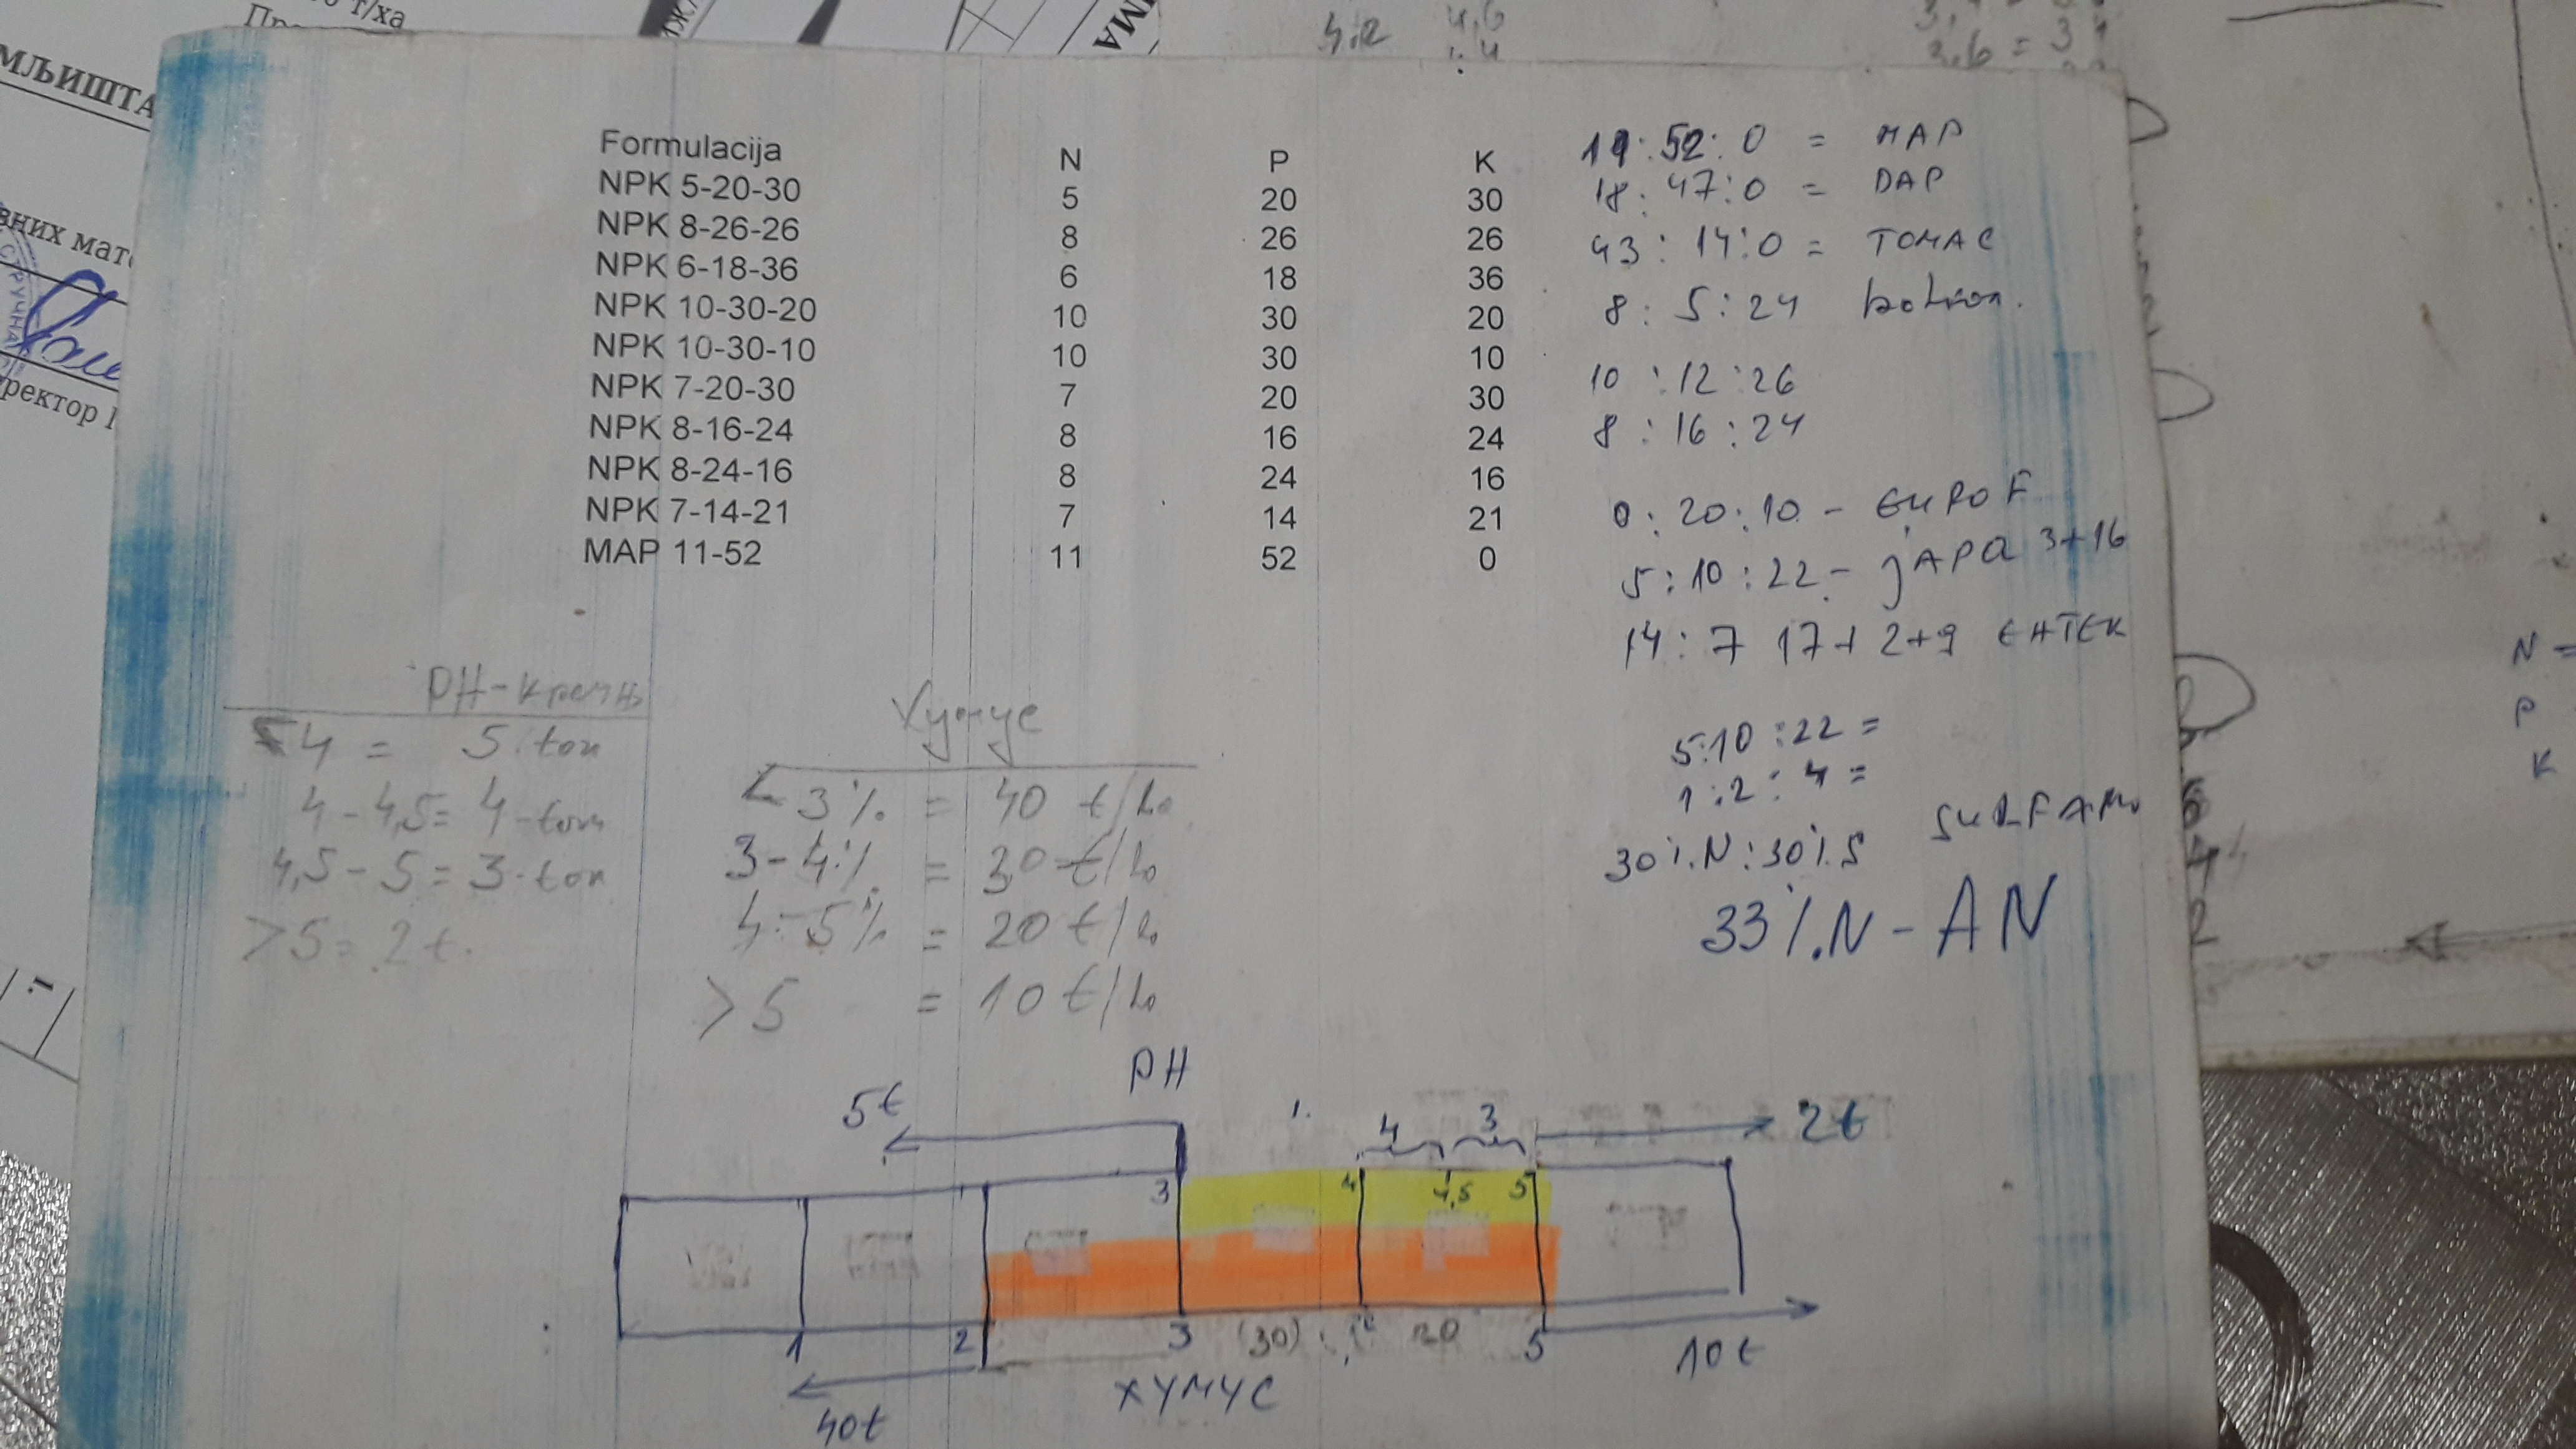 т/ха
МЉИШТА
вних мат
СТРУЧНА
ректор
ИМА
4,2 4,6
3,6 = 3
Formulacija N P K
NPK 5-20-30 5 20 30
NPK 8-26-26 8 26 26
NPK 6-18-36 6 18 36
NPK 10-30-20 10 30 20
NPK 10-30-10 10 30 10
NPK 7-20-30 7 20 30
NPK 8-16-24 8 16 24
NPK 8-24-16 8 24 16
NPK 7-14-21 7 14 21
MAP 11-52 11 52 0
11:52:0 = MAP
18:47:0 = DAP
43:14:0 = TOMAC
8:5:24
10:12:26
8:16:24
0:20:10 - EUROF
5:10:22 - JAPA 3+16
14:7 17+2+9 EHTEK
5:10:22 =
1:2:4 =
30%N:30%S
33%N - AN
N =
P
K
PH-кречњ
< 4 = 5 ton
4-4,5 = 4 ton
4,5-5 = 3 ton
>5 = 2t.
Хумус
< 3% = 40 t/ha
3-4% = 30 t/ha
4-5% = 20 t/ha
>5 = 10 t/ha
PH
5t 4 3 2t
3 4 4,5 5
1 2 3 (30) 20 5
40t ХУМУС 10t